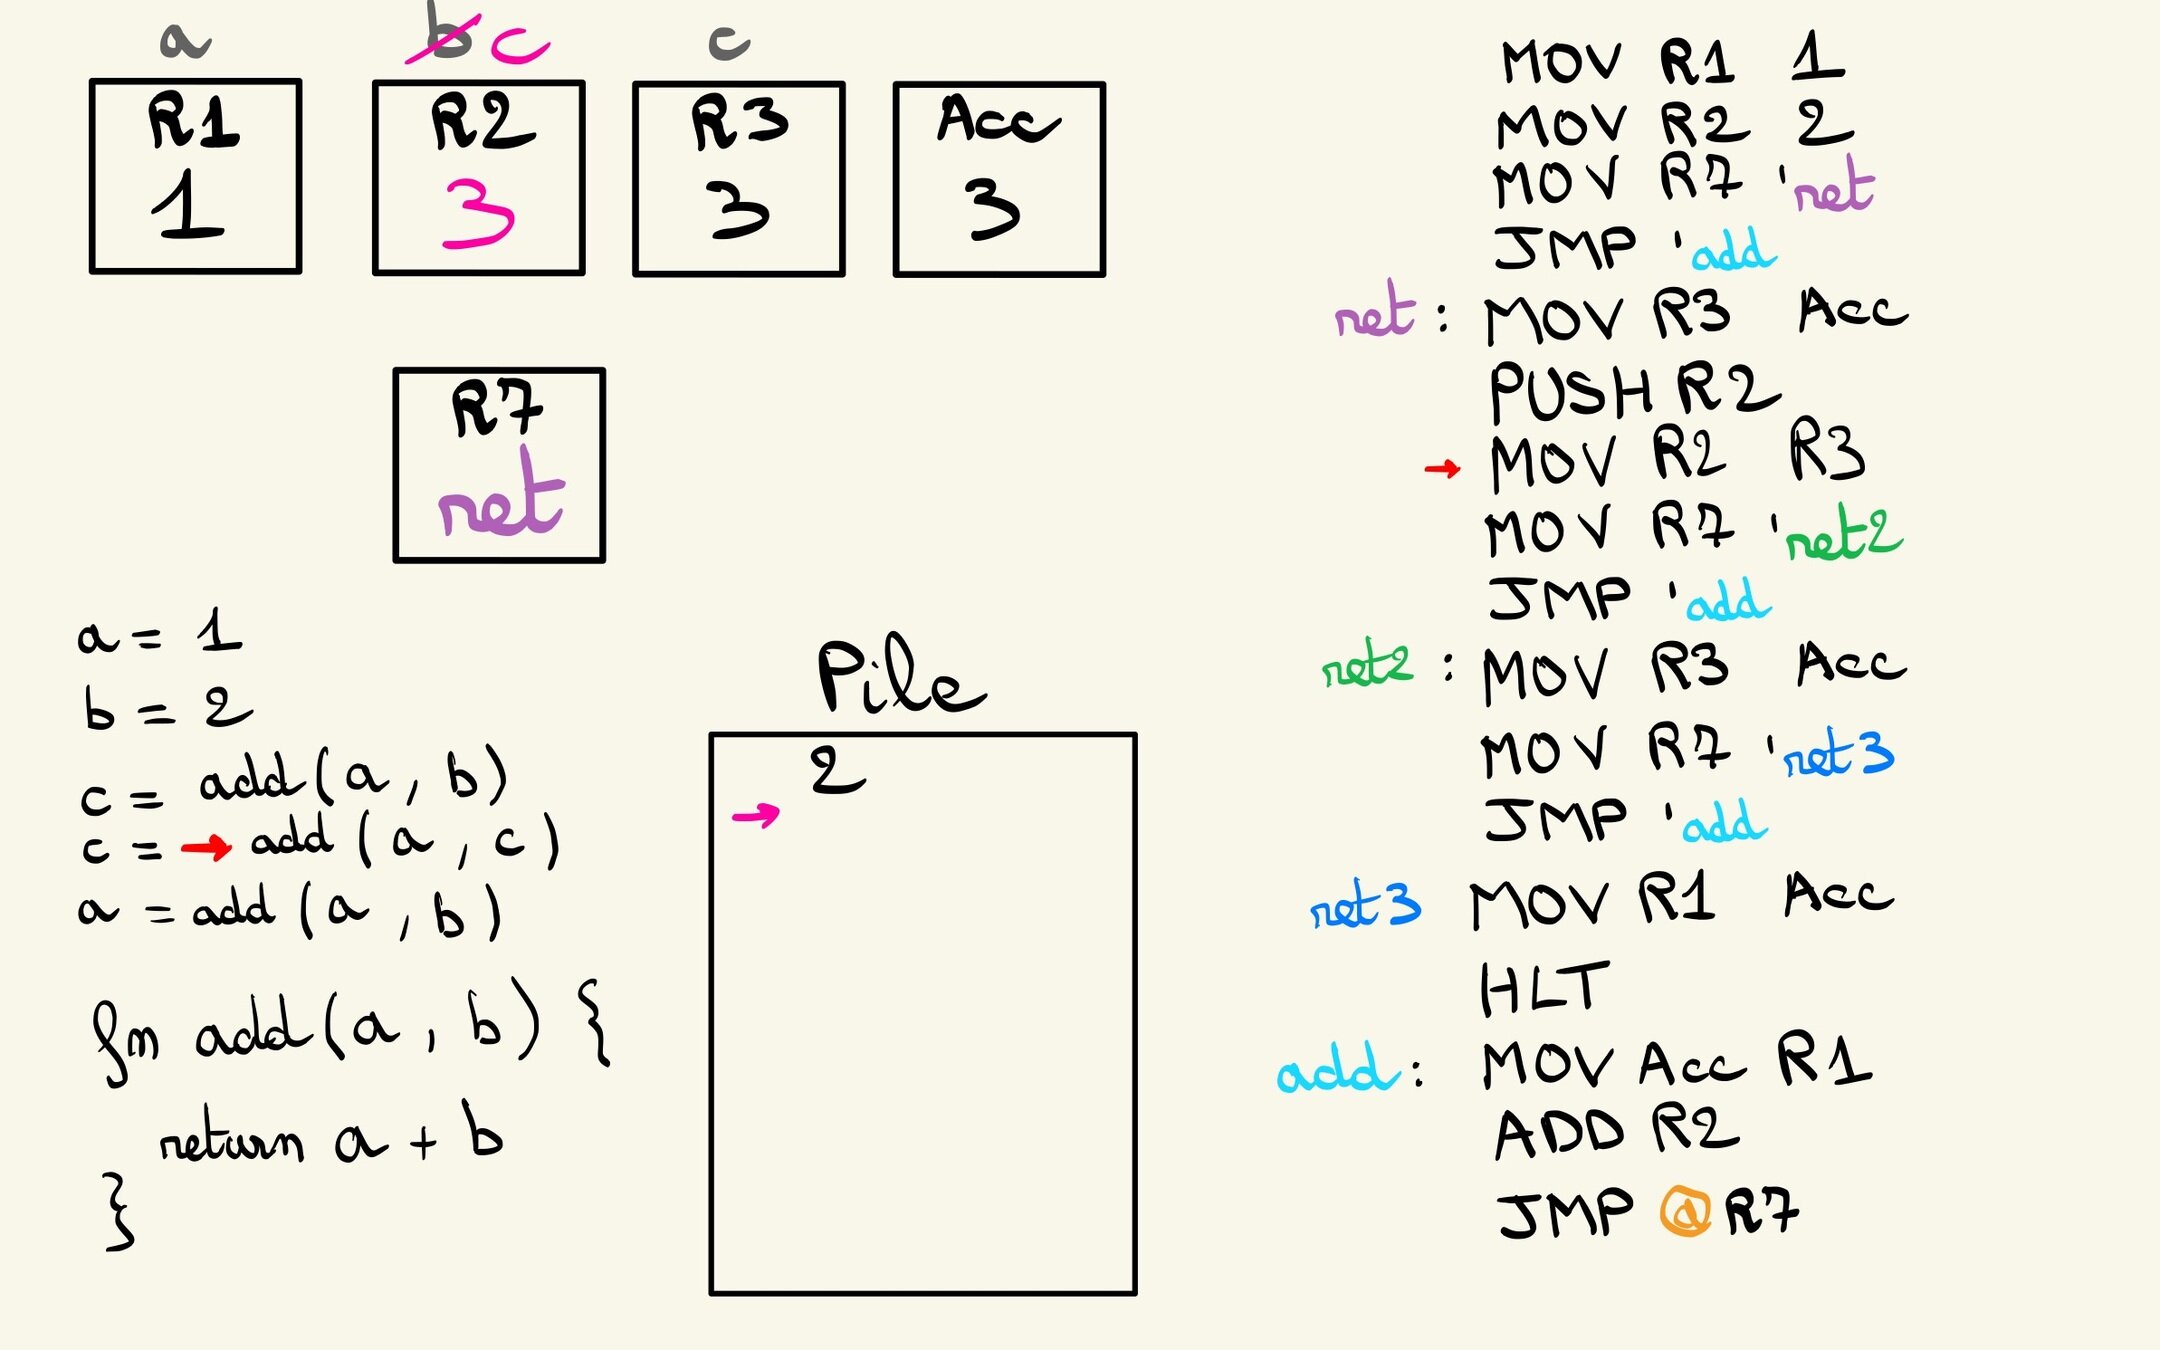 a
b c
c
R1
1
R2
3
R3
3
Acc
3
R7
ret
a = 1
b = 2
c = add(a, b)
c = → add(a, c)
a = add(a, b)
fn add(a, b) {
return a + b
}
Pile
2
→
MOV R1 1
MOV R2 2
MOV R7 'ret
JMP 'add
ret: MOV R3 Acc
PUSH R2
→ MOV R2 R3
MOV R7 'ret2
JMP 'add
ret2: MOV R3 Acc
MOV R7 'ret3
JMP 'add
ret3 MOV R1 Acc
HLT
add: MOV Acc R1
ADD R2
JMP @R7